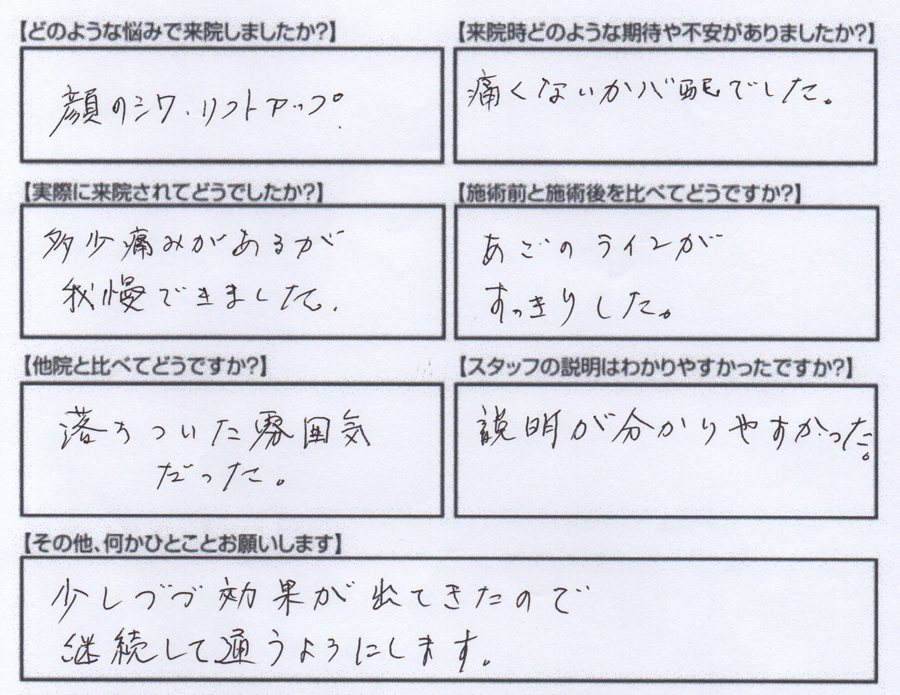 【どのような悩みで来院しましたか?】
顔のシワ、リフトアップ。
【来院時どのような期待や不安がありましたか?】
痛くないか心配でした。
【実際に来院されてどうでしたか?】
多少痛みがあるが
我慢できました。
【施術前と施術後を比べてどうですか?】
あごのラインが
すっきりした。
【他院と比べてどうですか?】
落ちついた雰囲気
だった。
【スタッフの説明はわかりやすかったですか?】
説明が分かりやすかった。
【その他、何かひとことお願いします】
少しづづ効果が出てきたので
継続して通うようにします。